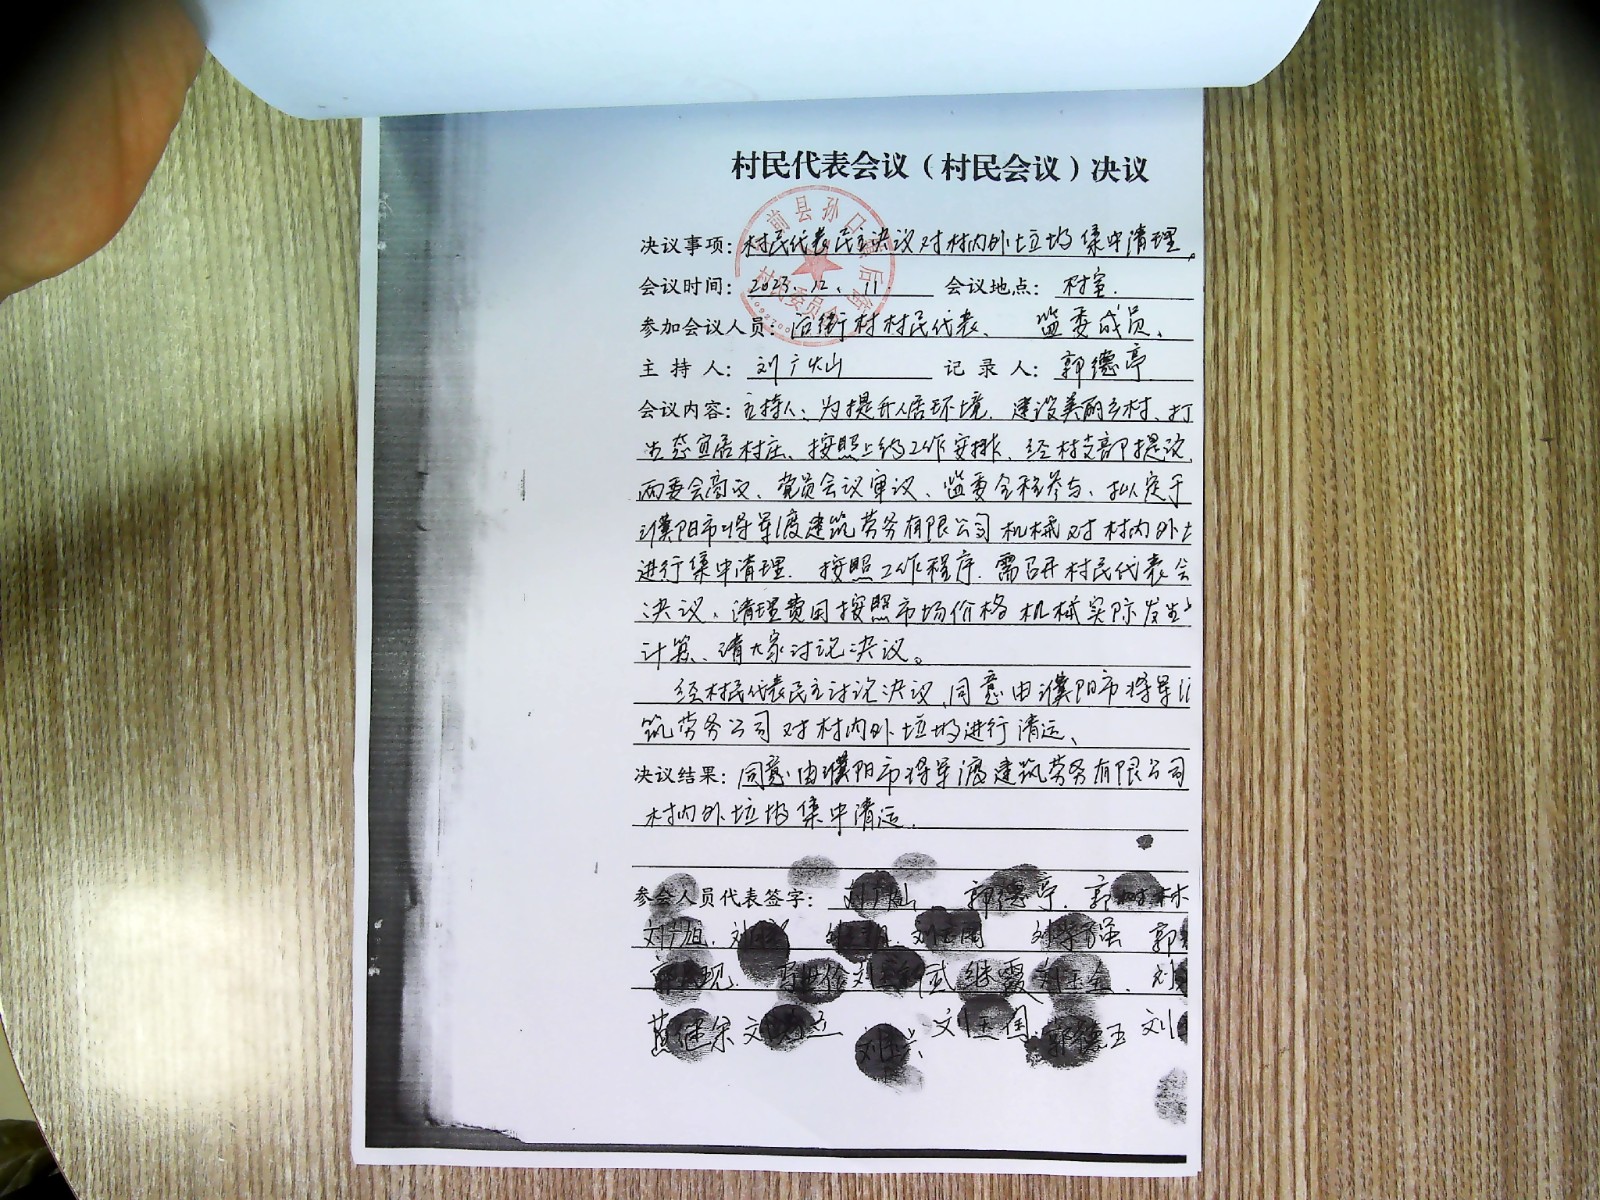 村民代表会议（村民会议）决议
决议事项：村民代表民主决议对村内外垃圾集中清理。
会议时间：2023.12.11 会议地点：村室.
参加会议人员：后街村村民代表、监委成员、
主持人：刘广山 记录人：郭德亭
会议内容：主持人：为提升人居环境.建设美丽乡村、打
生态宜居村庄、按照上级工作安排、经村支部提议
两委会商议、党员会议审议、监委全程参与、拟定于
濮阳市将军渡建筑劳务有限公司机械对村内外
进行集中清理.按照工作程序.需召开村民代表会
决议、清理费用按照市场价格机械实际发生
计算、请大家讨论决议。
经村民代表民主讨论决议、同意由濮阳市将军
筑劳务公司对村内外垃圾进行清运、
决议结果：同意由濮阳市将军渡建筑劳务有限公司
村内外垃圾集中清运.
参会人员代表签字：刘广山 郭德亭. 郭树林
刘荣强 郭
武继霞
刘玉国 郭德玉 刘
县孙口
村民委员